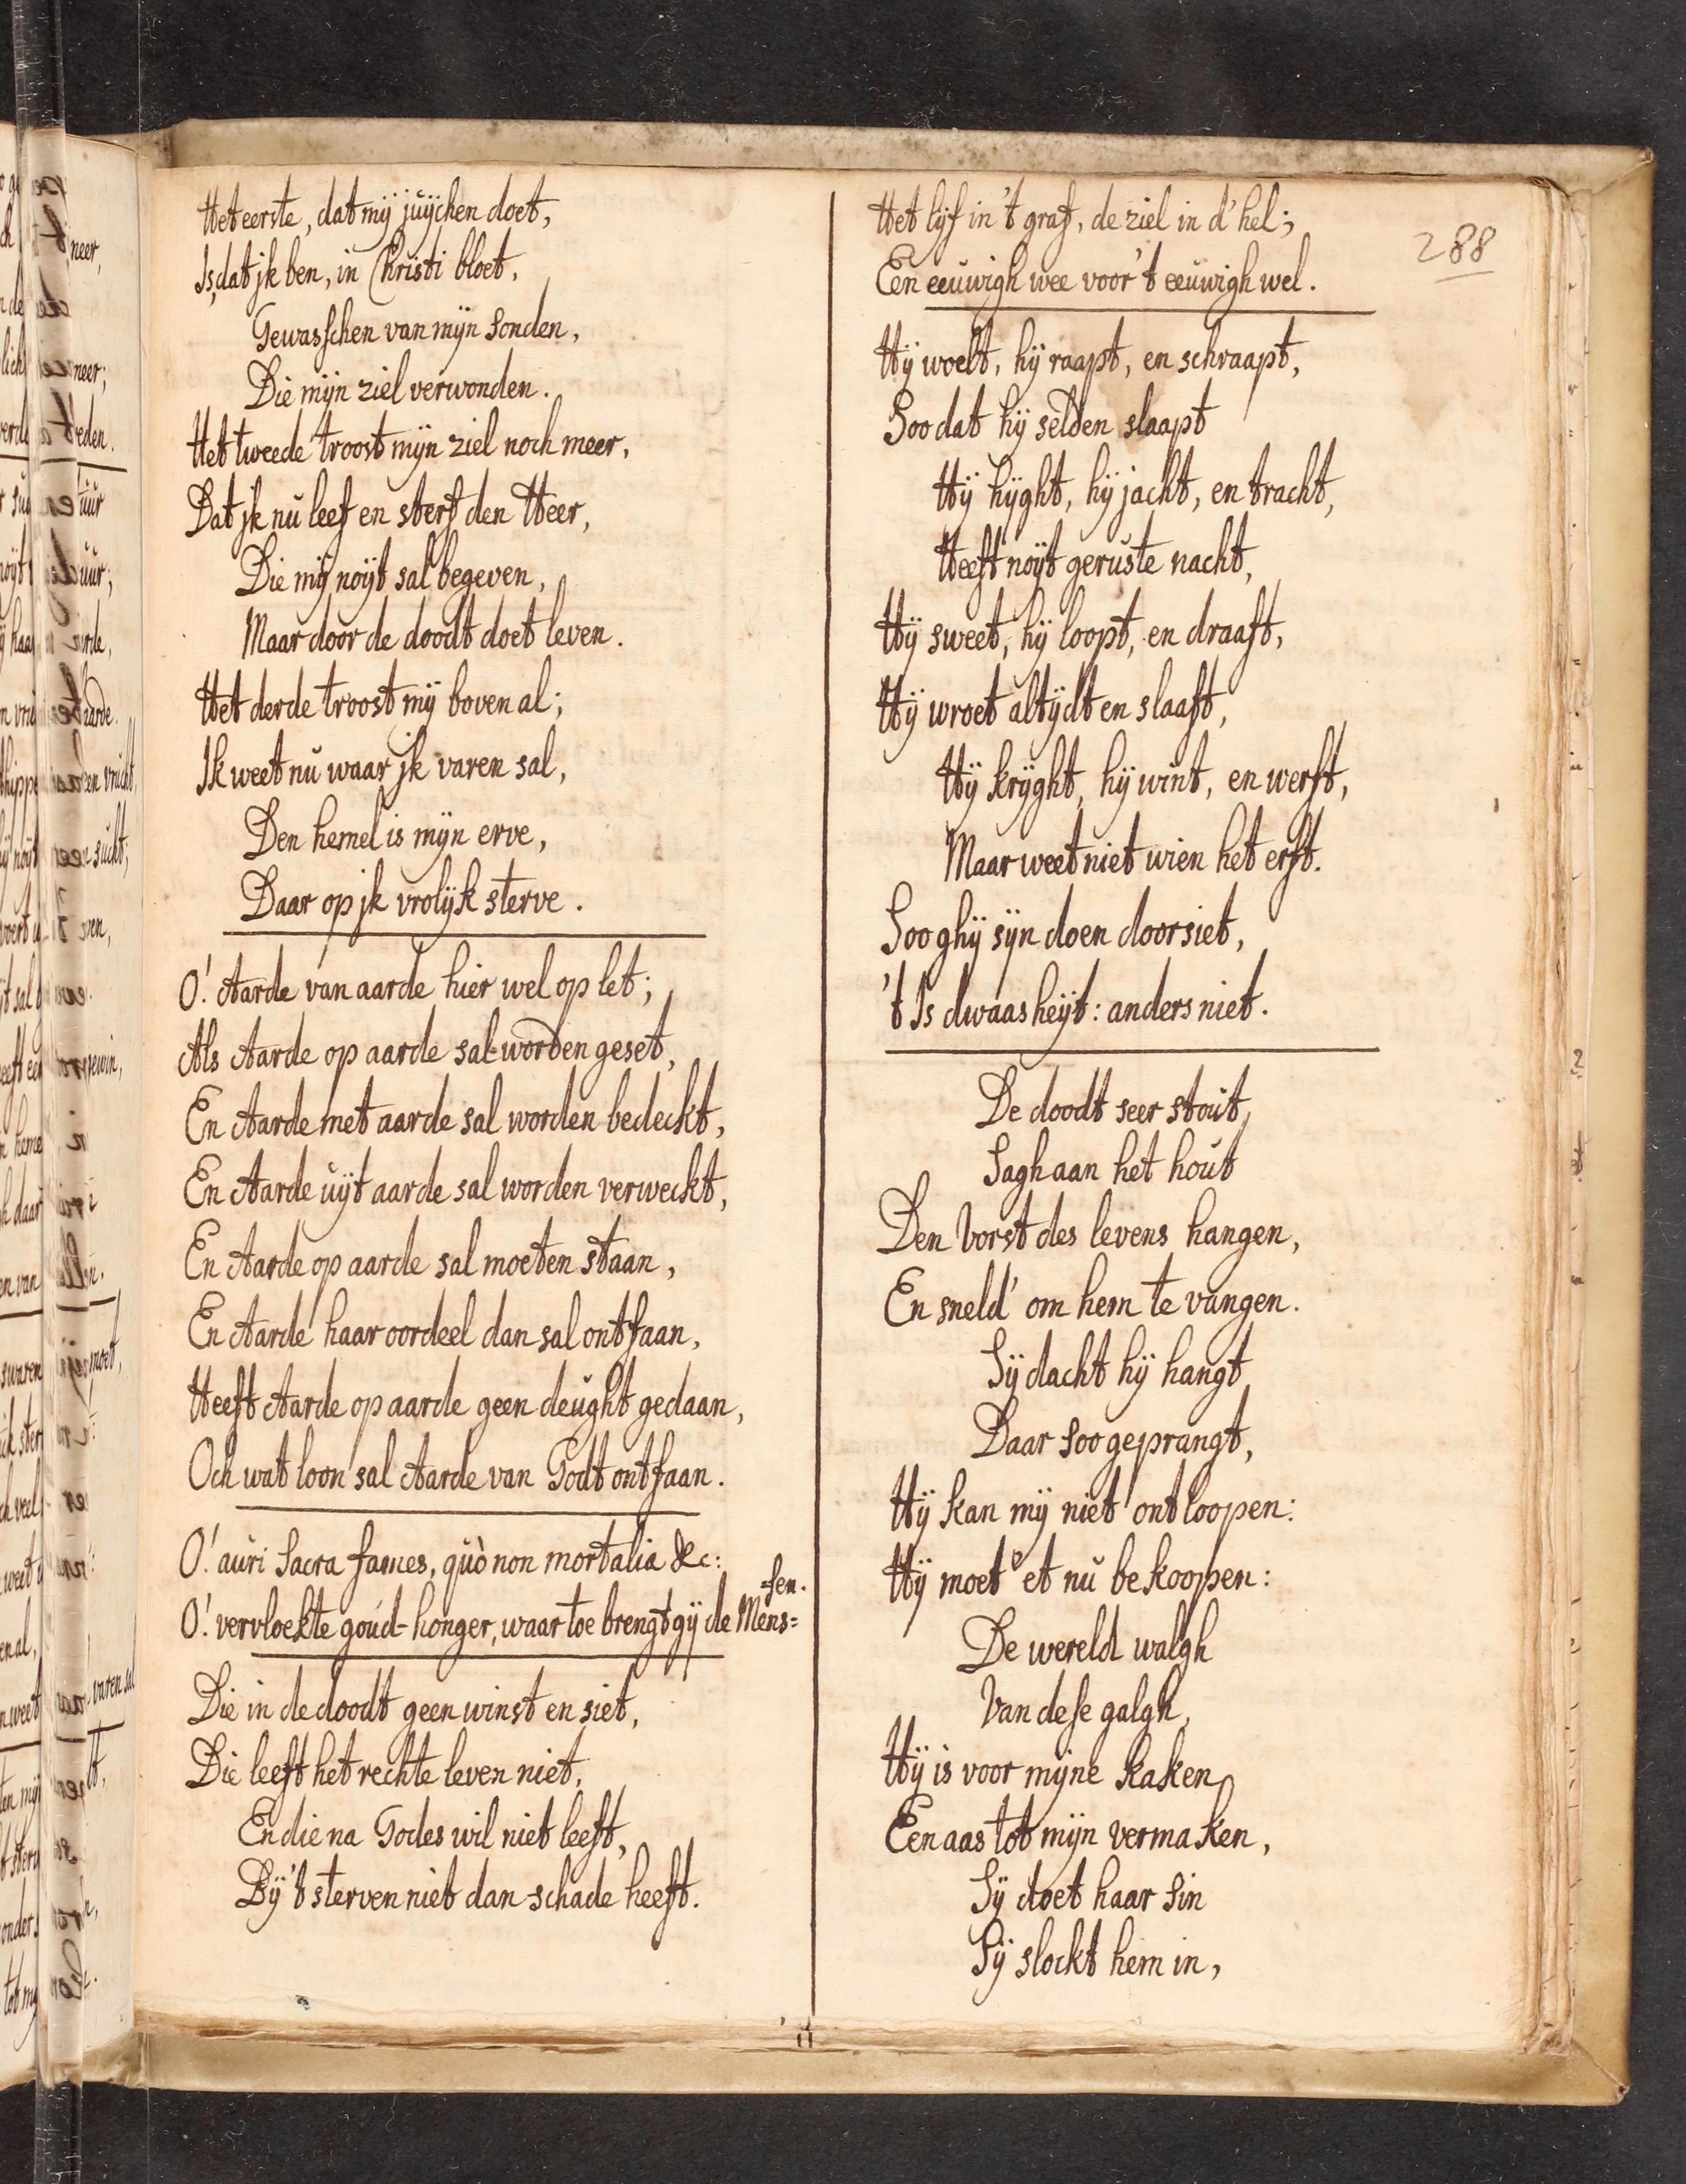 Het eerste, dat mÿ juÿchen doet,
Is, dat jk ben, in Christi bloet,
Gewasschen van mÿn sonden,
Die mÿn ziel verwonden.
Het tweede troost mÿn ziel noch meer,
Dat jk nu leef en sterf den Heer,
Die mÿ noÿt sal begeven,
Maar door de doodt doet leven.
Het derde troost mÿ boven al;
Ik weet nu waar jk varen sal,
Den hemel is mÿn erve,
Daar op jk vrolÿk sterve.
O! Aarde van aarde hier wel op let;
Als Aarde op aarde sal worden geset,
En Aarde met aarde sal worden bedeckt,
En Aarde uÿt aarde sal worden verweckt,
En Aarde op aarde sal moeten staan,
En Aarde haar oordeel dan sal ontfaan,
Heeft Aarde op aarde geen deught gedaan,
Och wat loon sal Aarde van Godt ontfaan.
O! auri sacra fames, quò non mortalia &c:
O! vervloekte goud-honger, waar toe brengt gÿ de Mens=
=sen.
Die in de doodt geen winst en siet,
Die leeft het rechte leven niet,
En die na Godes wil niet leeft,
Bÿ 't sterven niet dan schade heeft.
288
Het lÿf in 't graf, de ziel in d' hel;
Een eeuwigh wee voor 't eeuwigh wel.
Hÿ woelt, hÿ raapt, en schraapt,
Soo dat hÿ selden slaapt
Hÿ hÿght, hÿ jacht, en tracht,
Heeft noÿt geruste nacht,
Hÿ sweet, hÿ loopt, en draaft,
Hÿ wroet altÿdt en slaaft,
Hÿ krÿght, hÿ wint, en werft,
Maar weet niet wien het erft.
Soo ghÿ sÿn doen doorsiet,
't Is dwaasheÿt: anders niet.
De doodt seer stout,
Sagh aan het hout
Den Vorst des levens hangen,
En sneld' om hem te vangen.
Sÿ dacht hÿ hangt,
Daar soo geprangt,
Hÿ kan mÿ niet ontloopen:
Hÿ moet et nu bekoopen:
De wereld walgh
Van dese galgh,
Hÿ is voor mÿne kaken
Een aas tot mÿn vermaken,
Sÿ doet haar sin
Sÿ slockt hem in,